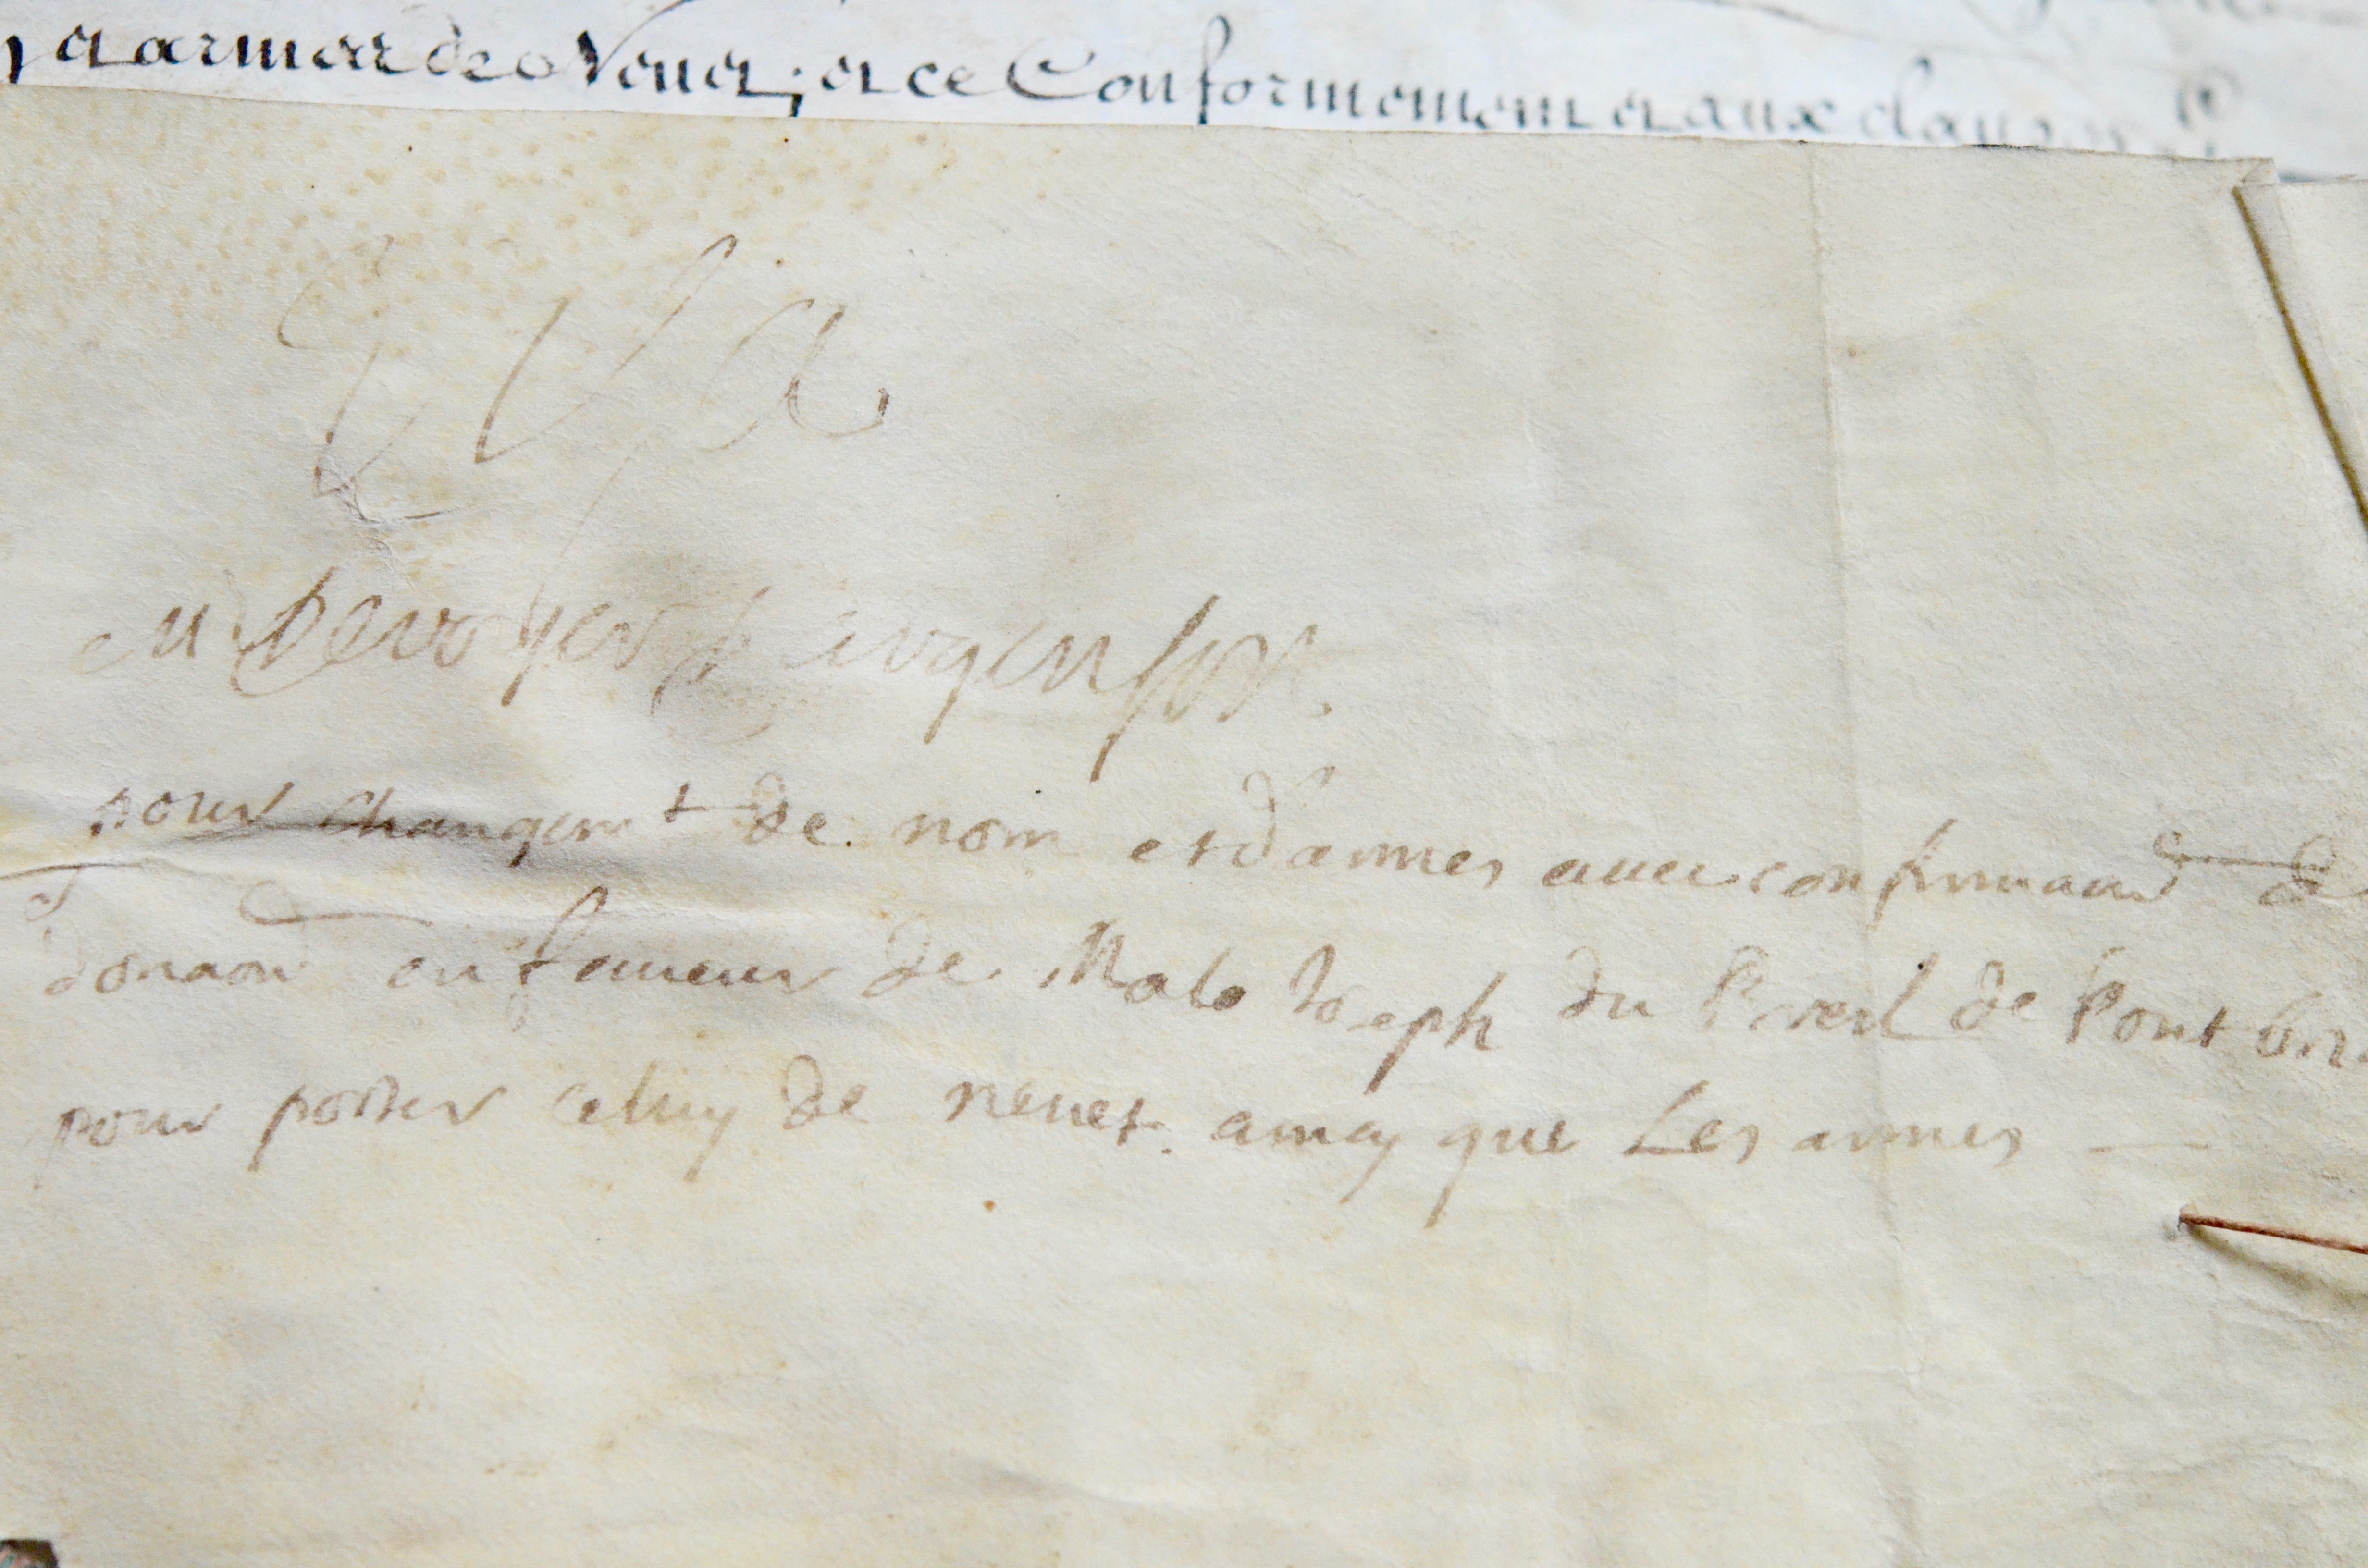 et armes de Nevet; et ce Conformement et aux clauses
Visa
M De voyer D argenson
pour changemt de nom et d'armes avec confirmaon de
donaon en faveur de Malo Joseph du Breil de Pont bri
pour porter celuy de nevet. ainsy que Les armes —